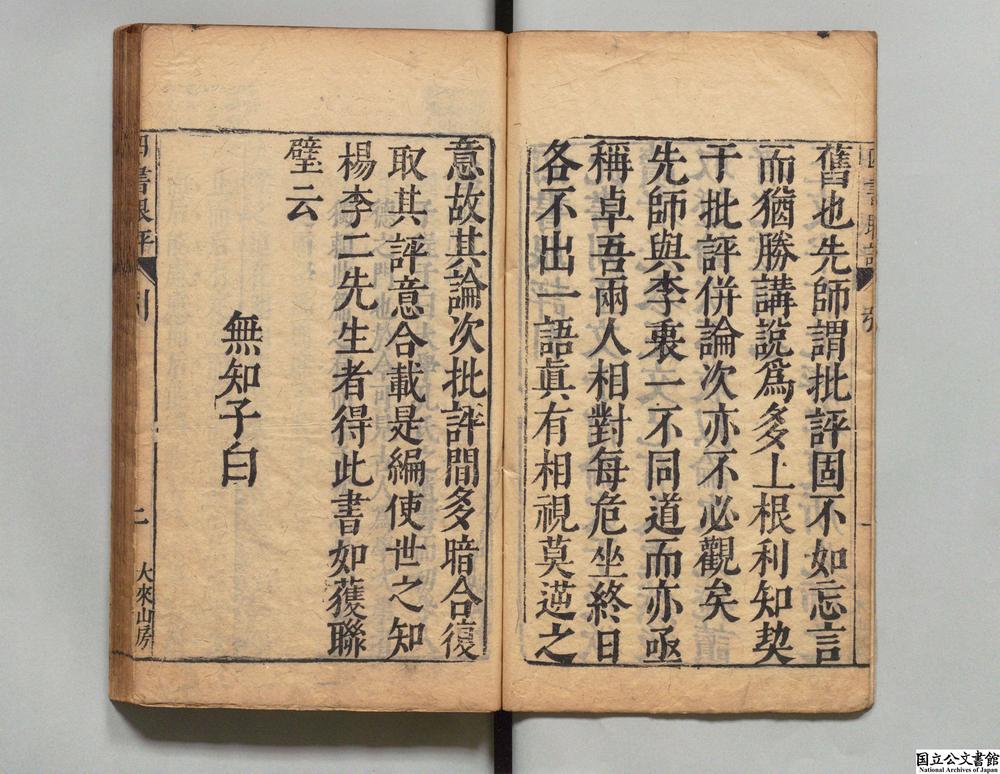 舊也先師謂批評固不如忘言
而猶勝講說爲多上根利知契
于批評併論次亦不必觀矣
先師與李裏一不同道而亦亟
稱卓吾兩人相對每危坐終日
各不出一語眞有相視莫逆之
意故其論次批評間多暗合復
取其評意合載是編使世之知
楊李二先生者得此書如獲聯
璧云
無知子白
四書眼評
二
大來山房
国立公文書館
National Archives of Japan